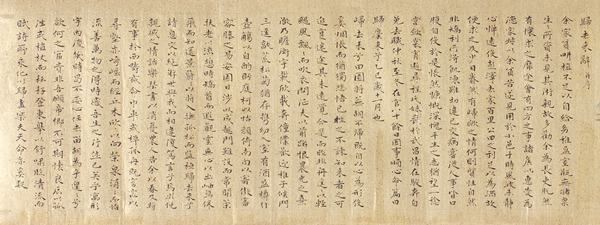 歸去來辭 并序
余家貧耕植不足以自給幼稚盈室缾無儲粟
生生所資未見其術親故多勸余為長吏脫然
有懷求之靡途會有四方之事諸侯以惠愛為
德家叔以余貧苦遂見用於小邑于時風波未靜
心憚遠役彭澤去家百里公田之利足以為酒故
便求之及少日眷然有歸歟之情何則質性自然
非矯勵所得飢凍雖切違己交病嘗從人事皆口
腹自役於是悵然慷慨深愧平生之志猶望一稔
當斂裳宵逝尋程氏妹喪于武昌情在駿奔自
免去職仲秋至冬在官八十餘日因事順心命篇曰
歸去來兮乙巳歲十一月也
歸去來兮田園將蕪胡不歸既自以心為形役
奚惆悵而獨悲悟已往之不諫知來者之可
追寔迷途其未遠覺今是而昨非舟遙遙以輕
颺風飄飄而吹衣問征夫以前路恨晨光之熹
微乃瞻衡宇載欣載奔僮僕歡迎稚子候門
三逕就荒松菊猶存攜幼入室有酒盈樽引
壺觴以自酌眄庭柯以怡顏倚南窗以寄傲審
容膝之易安園日涉以成趣門雖設而常關策
扶老以流憩時矯首而遐觀雲無心以出岫鳥倦
飛而知還景翳翳以將入撫孤松而盤桓歸去來兮
請息交以絕游世與我而相遺復駕言兮焉求悅
親戚之情話樂琴書以消憂農人告余以春及將
有事於西疇或命巾車或棹孤舟既窈窕以
尋壑亦崎嶇而經丘木欣欣以向榮泉涓涓而始
流善萬物之得時感吾生之行休已矣乎寓形
宇內復幾時曷不委心任去留胡為遑遑
欲何之富貴非吾願帝鄉不可期懷良辰以孤
往或植杖而耘耔登東皋以舒嘯臨清流而
賦詩聊乘化以歸盡樂夫天命復奚疑